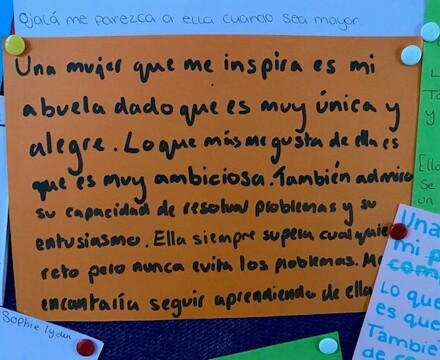 Ojalá me parezca a ella cuando sea mayor.
Una mujer que me inspira es mi
abuela dado que es muy única y
alegre. Lo que más me gusta de ella es
que es muy ambiciosa. También admiro
su capacidad de resolval problemas y su
entusiasmo. Ella siempre supera cualquie
reto pero nunca evita los problemas. Me
encantaría seguir aprendiendo de ella
Sophie
Ella
se
un
Una
mi
com
Lo que
es que
Tambie